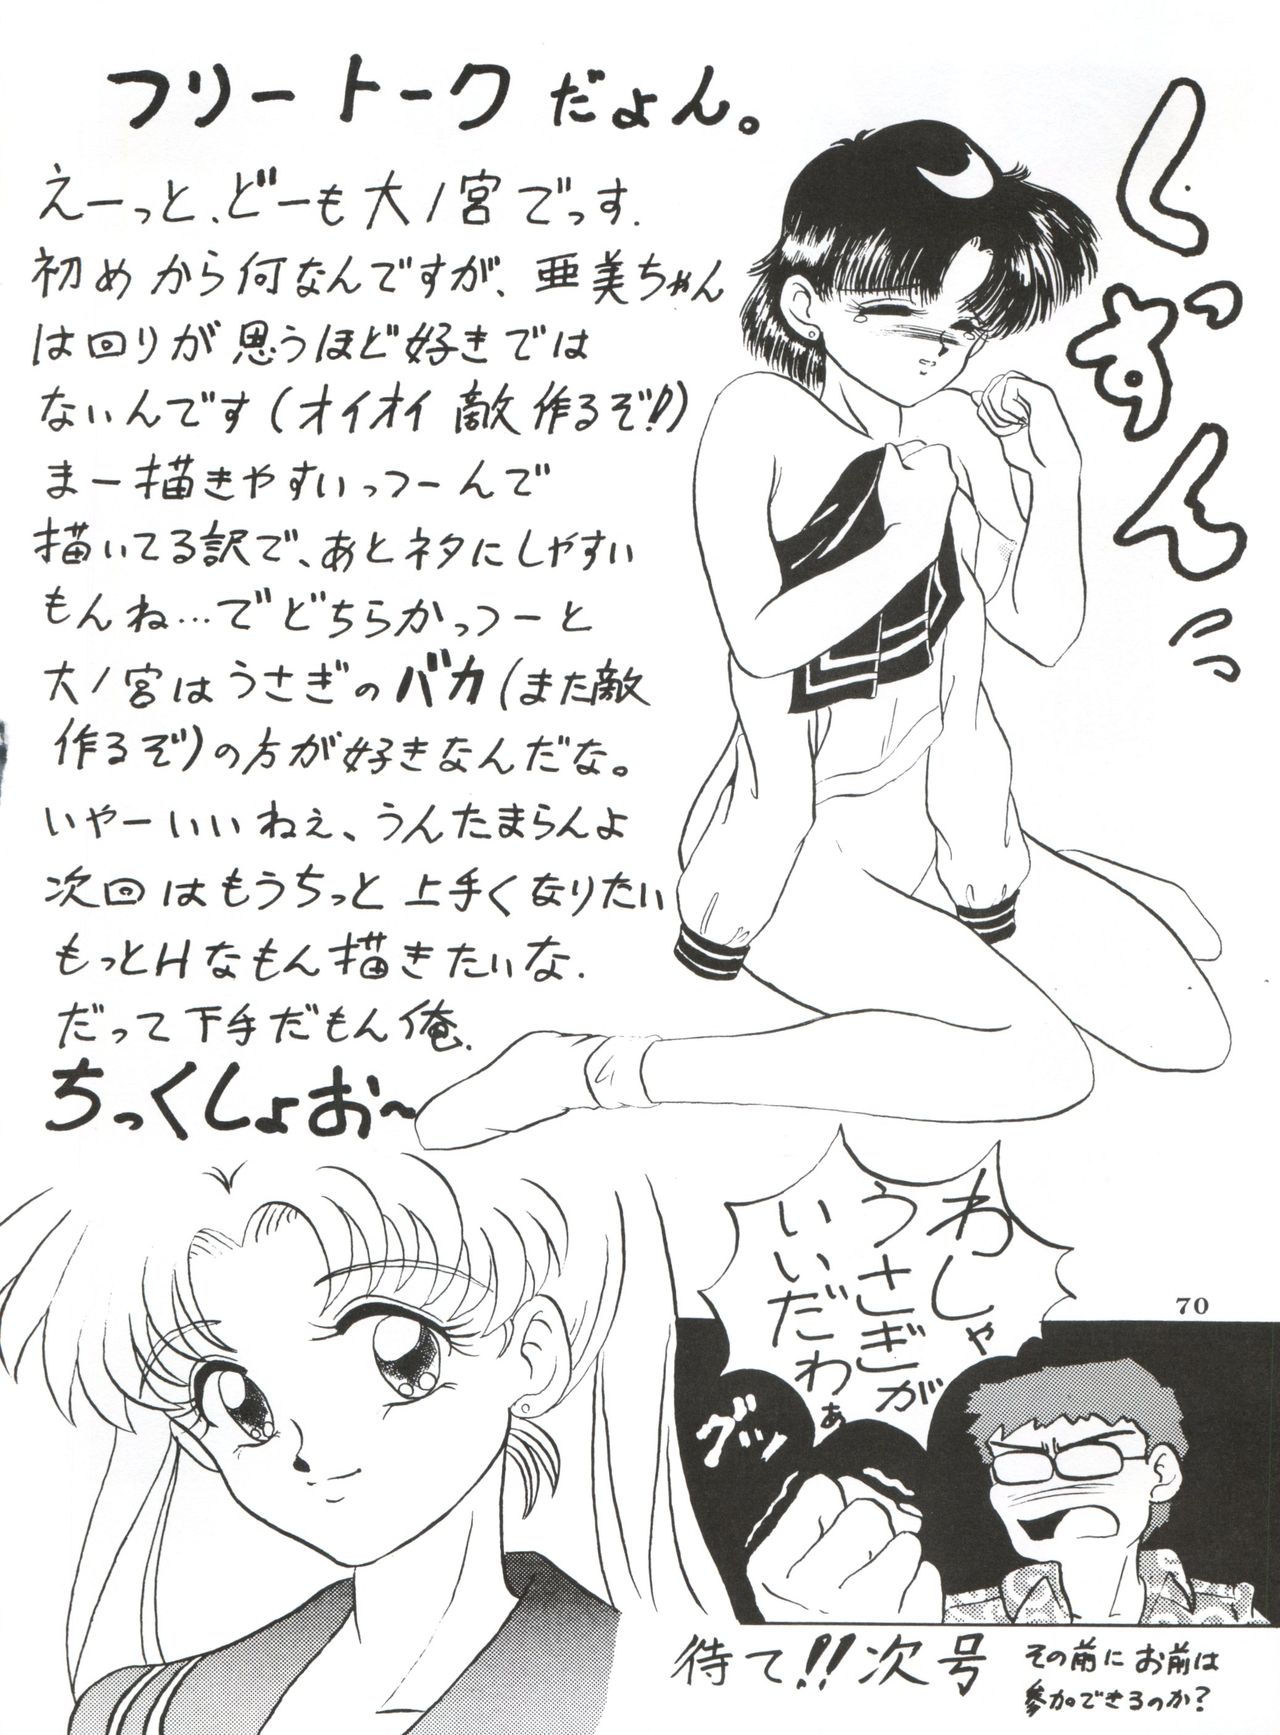 フリートークだょん。
えーっと、どーも大ノ宮でっす.
初めから何なんですが、亜美ちゃん
は回りが思うほど好きでは
ないんです(オイオイ敵作るぞ!!)
まー描きやすいっつーんで
描いてる訳で、あとネタにしやすい
もんね…でどちらかっつーと
大ノ宮はうさぎのバカ(また敵
作るぞ)の方が好きなんだな。
いやーいいねぇ、うんたまらんよ
次回はもうちっと上手くなりたい
もっとHなもん描きたいな.
だって下手だもん俺.
ちっくしょお〜
しっ
すん
わしゃ
うさぎが
いいだわぁ
70
グッ
待て!!次号
その前にお前は
参加できるのか?